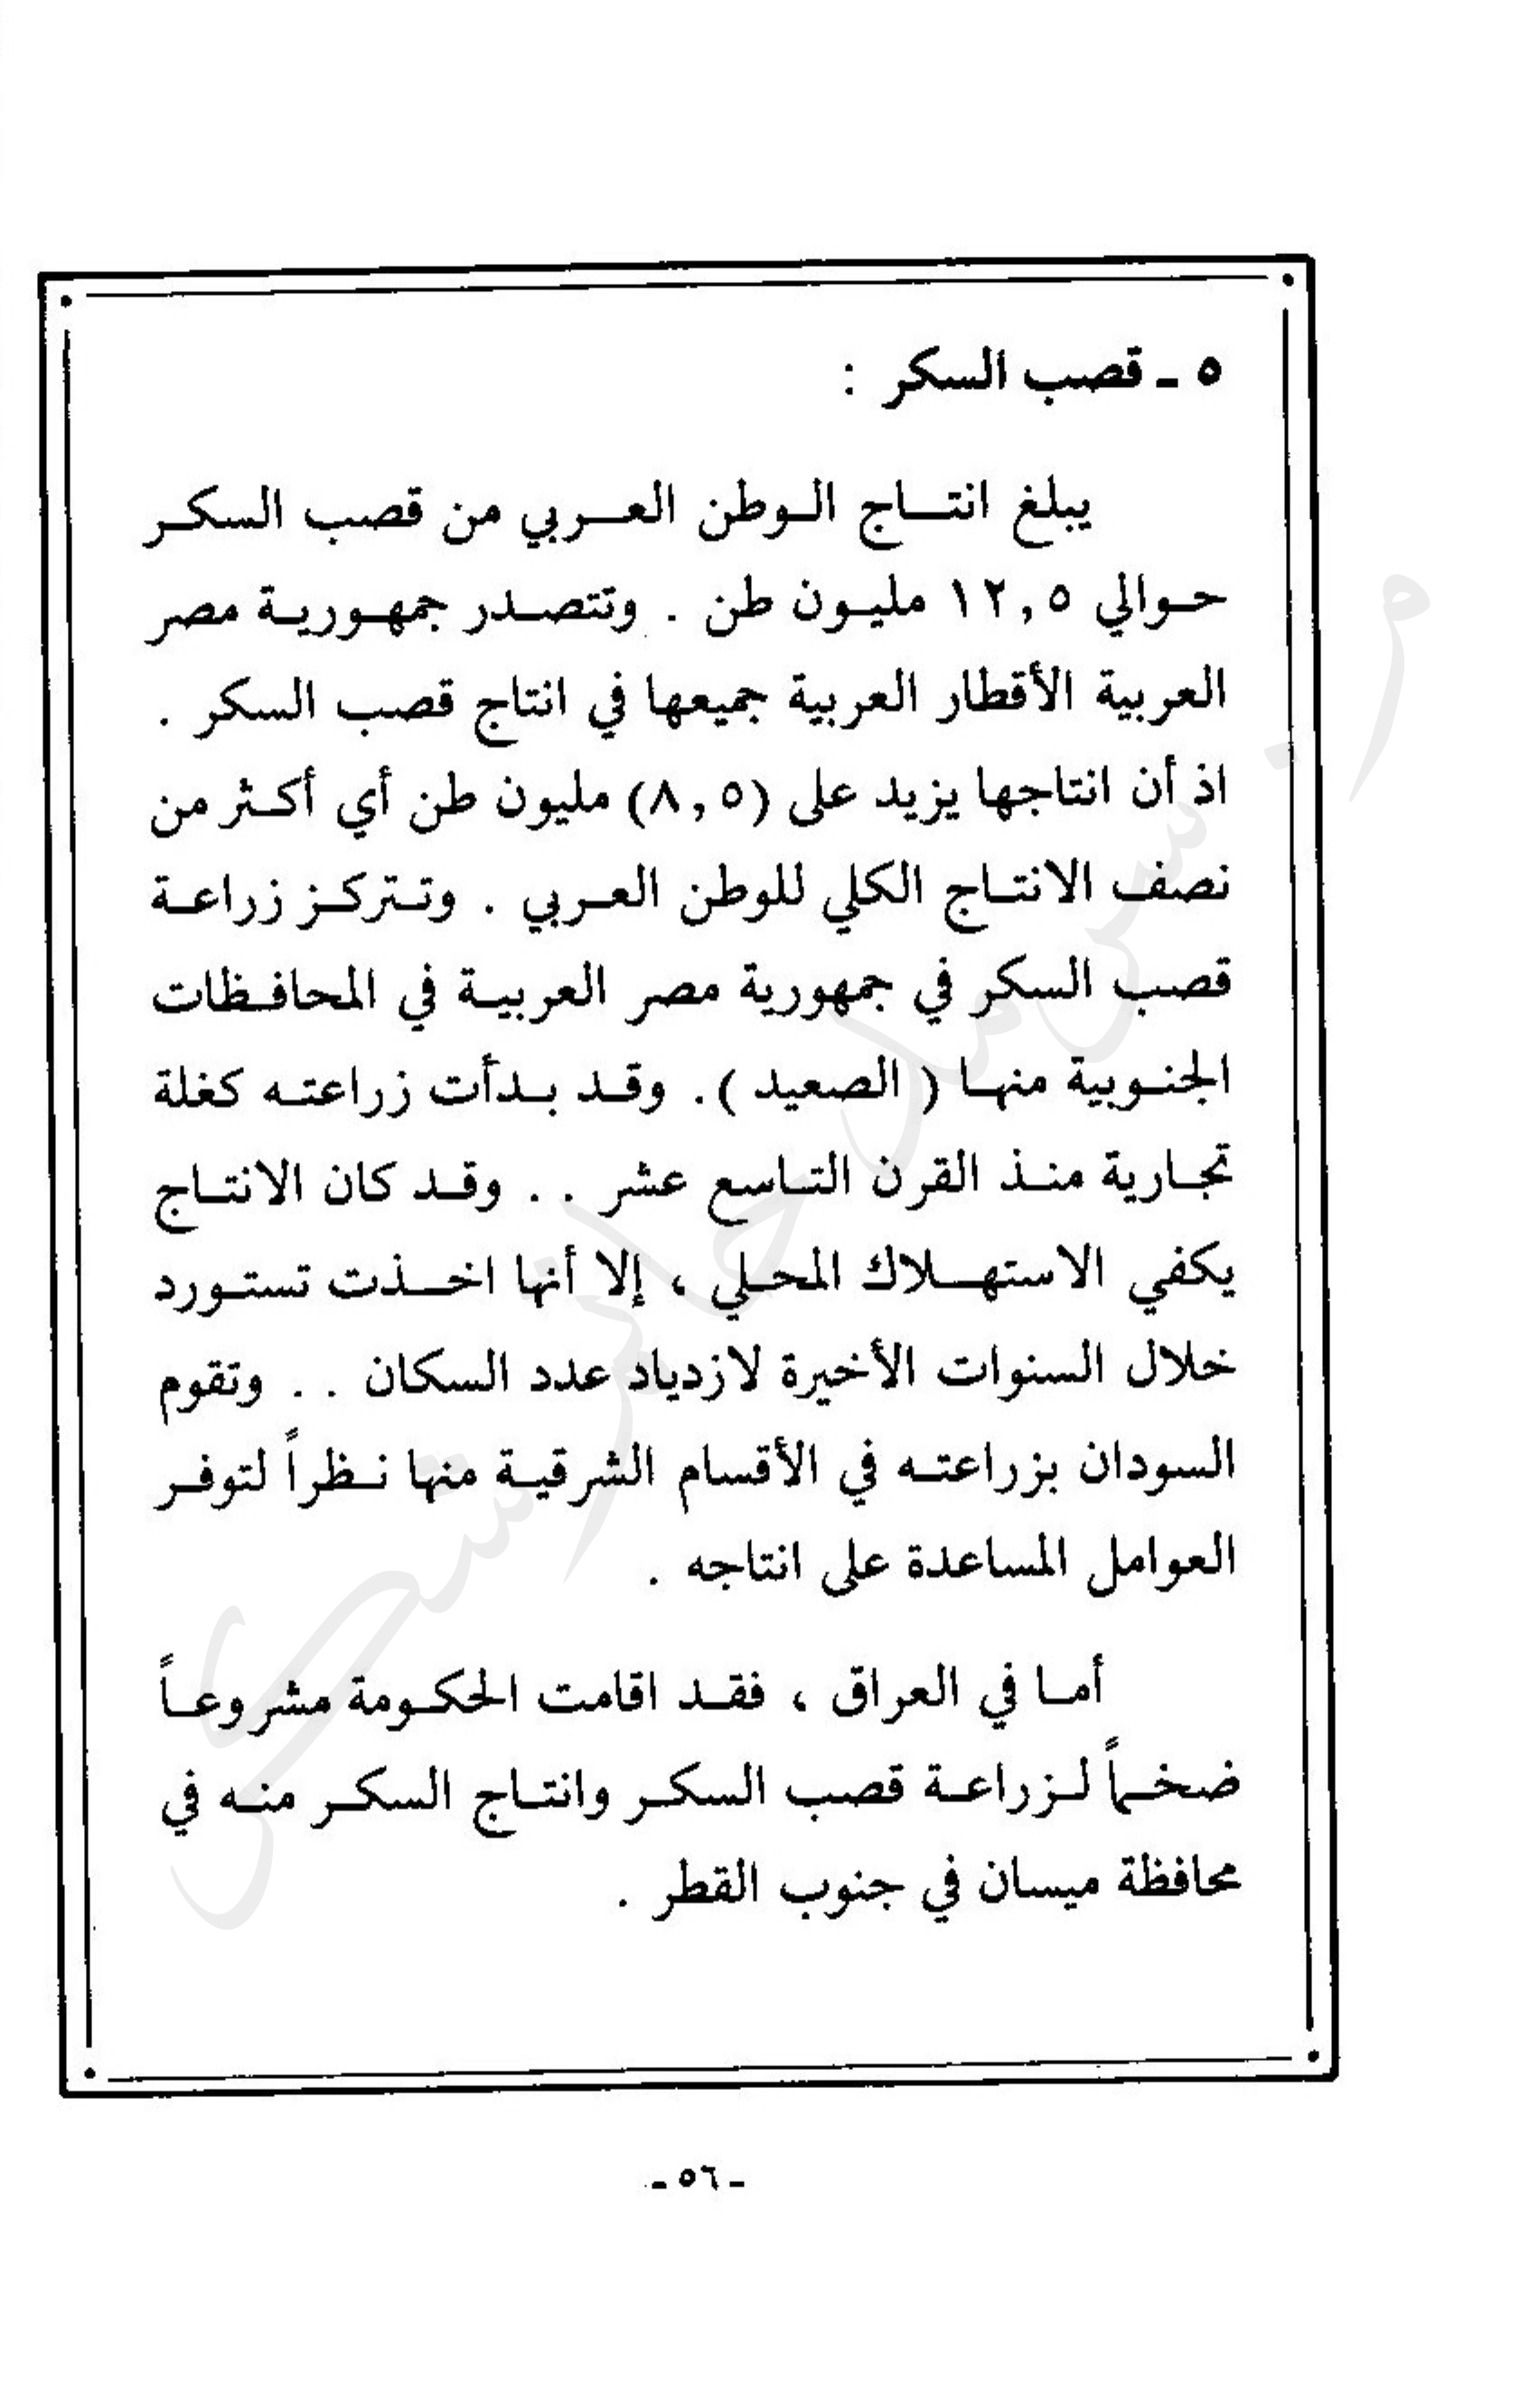 ٥ ـ قصب السكر :
يبلغ انتاج الوطن العربي من قصب السكر
حوالي ١٢,٥ مليون طن . وتتصدر جمهورية مصر
العربية الأقطار العربية جميعها في انتاج قصب السكر .
اذ أن انتاجها يزيد على (٨,٥) مليون طن أي أكثر من
نصف الانتاج الكلي للوطن العربي . وتتركز زراعة
قصب السكر في جمهورية مصر العربية في المحافظات
الجنوبية منها ( الصعيد ) . وقد بدأت زراعته كغلة
تجارية منذ القرن التاسع عشر . . وقد كان الانتاج
يكفي الاستهلاك المحلي ، إلا أنها اخذت تستورد
خلال السنوات الأخيرة لازدياد عدد السكان . . وتقوم
السودان بزراعته في الأقسام الشرقية منها نظراً لتوفر
العوامل المساعدة على انتاجه .
أما في العراق ، فقد اقامت الحكومة مشروعاً
ضخماً لزراعة قصب السكر وانتاج السكر منه في
محافظة ميسان في جنوب القطر .
ـ ٥٦ ـ